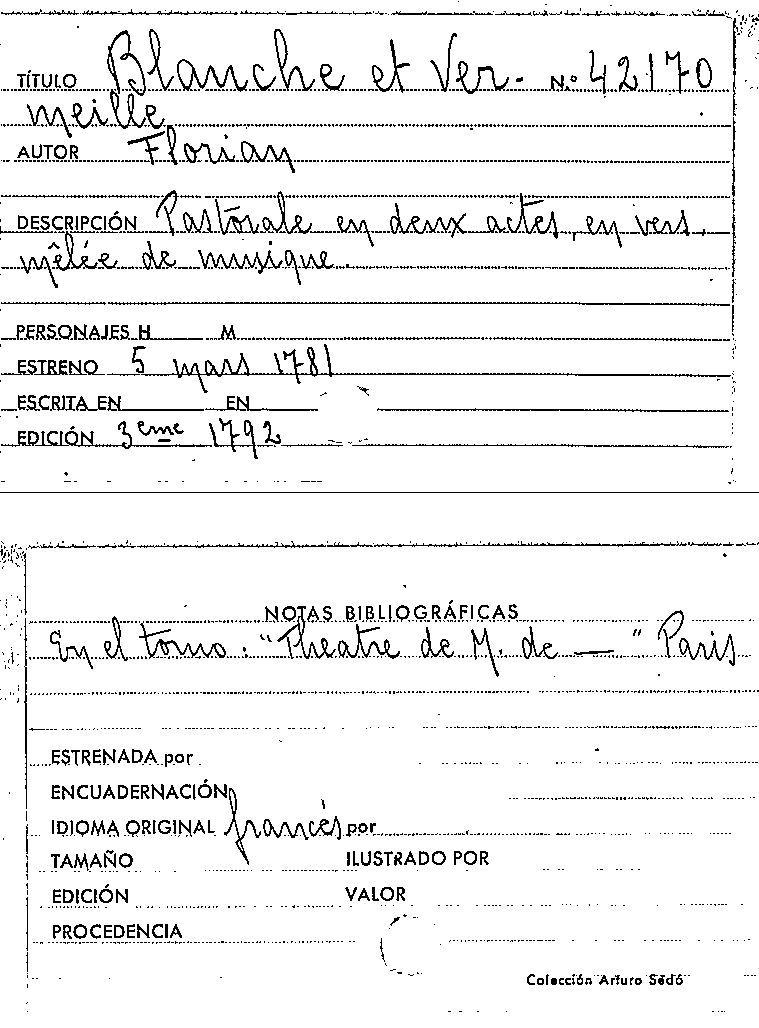 TÍTULO Blanche et Ver- N.º 42170
meille
AUTOR Florian
DESCRIPCIÓN Pastorale en deux actes, en vers,
mêlée de musique.
PERSONAJES H M
ESTRENO 5 mars 1781
ESCRITA EN EN
EDICIÓN 3eme 1792
NOTAS BIBLIOGRÁFICAS
En el tomo: "Theatre de M. de — " Paris
ESTRENADA por
ENCUADERNACIÓN
IDIOMA ORIGINAL francés por
TAMAÑO ILUSTRADO POR
EDICIÓN VALOR
PROCEDENCIA
Colección Arturo Sedó